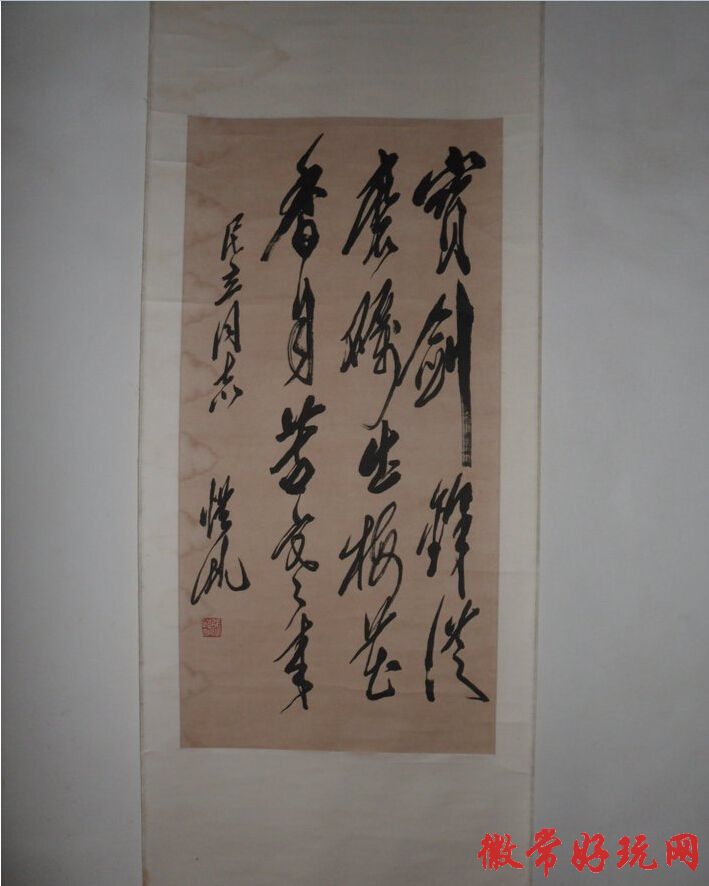 寶劍鋒從
磨礪出梅花
香自苦寒來
民立同志 愷帆
徽常好玩网